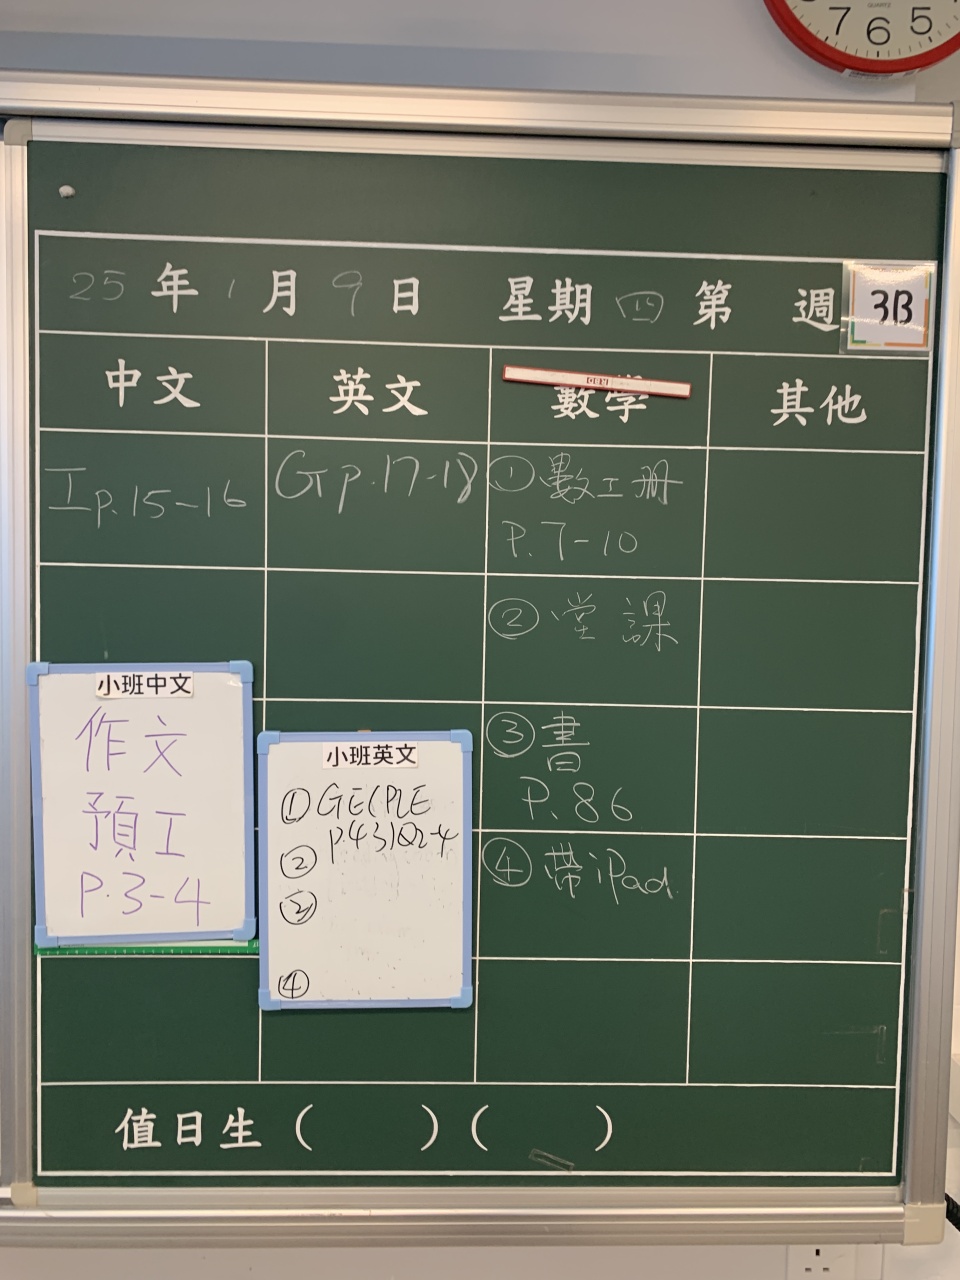 QUARTZ
7 6 5
25年1月9日 星期四 第 週 3B
中文 英文 數學 其他
工p.15-16
Gp.17-18
①數工冊
P.7-10
②堂課
③書
P.86
④帶iPad
小班中文
作文
預工
P.3-4
小班英文
①GE(PLE
②
③
④
值日生( )( )